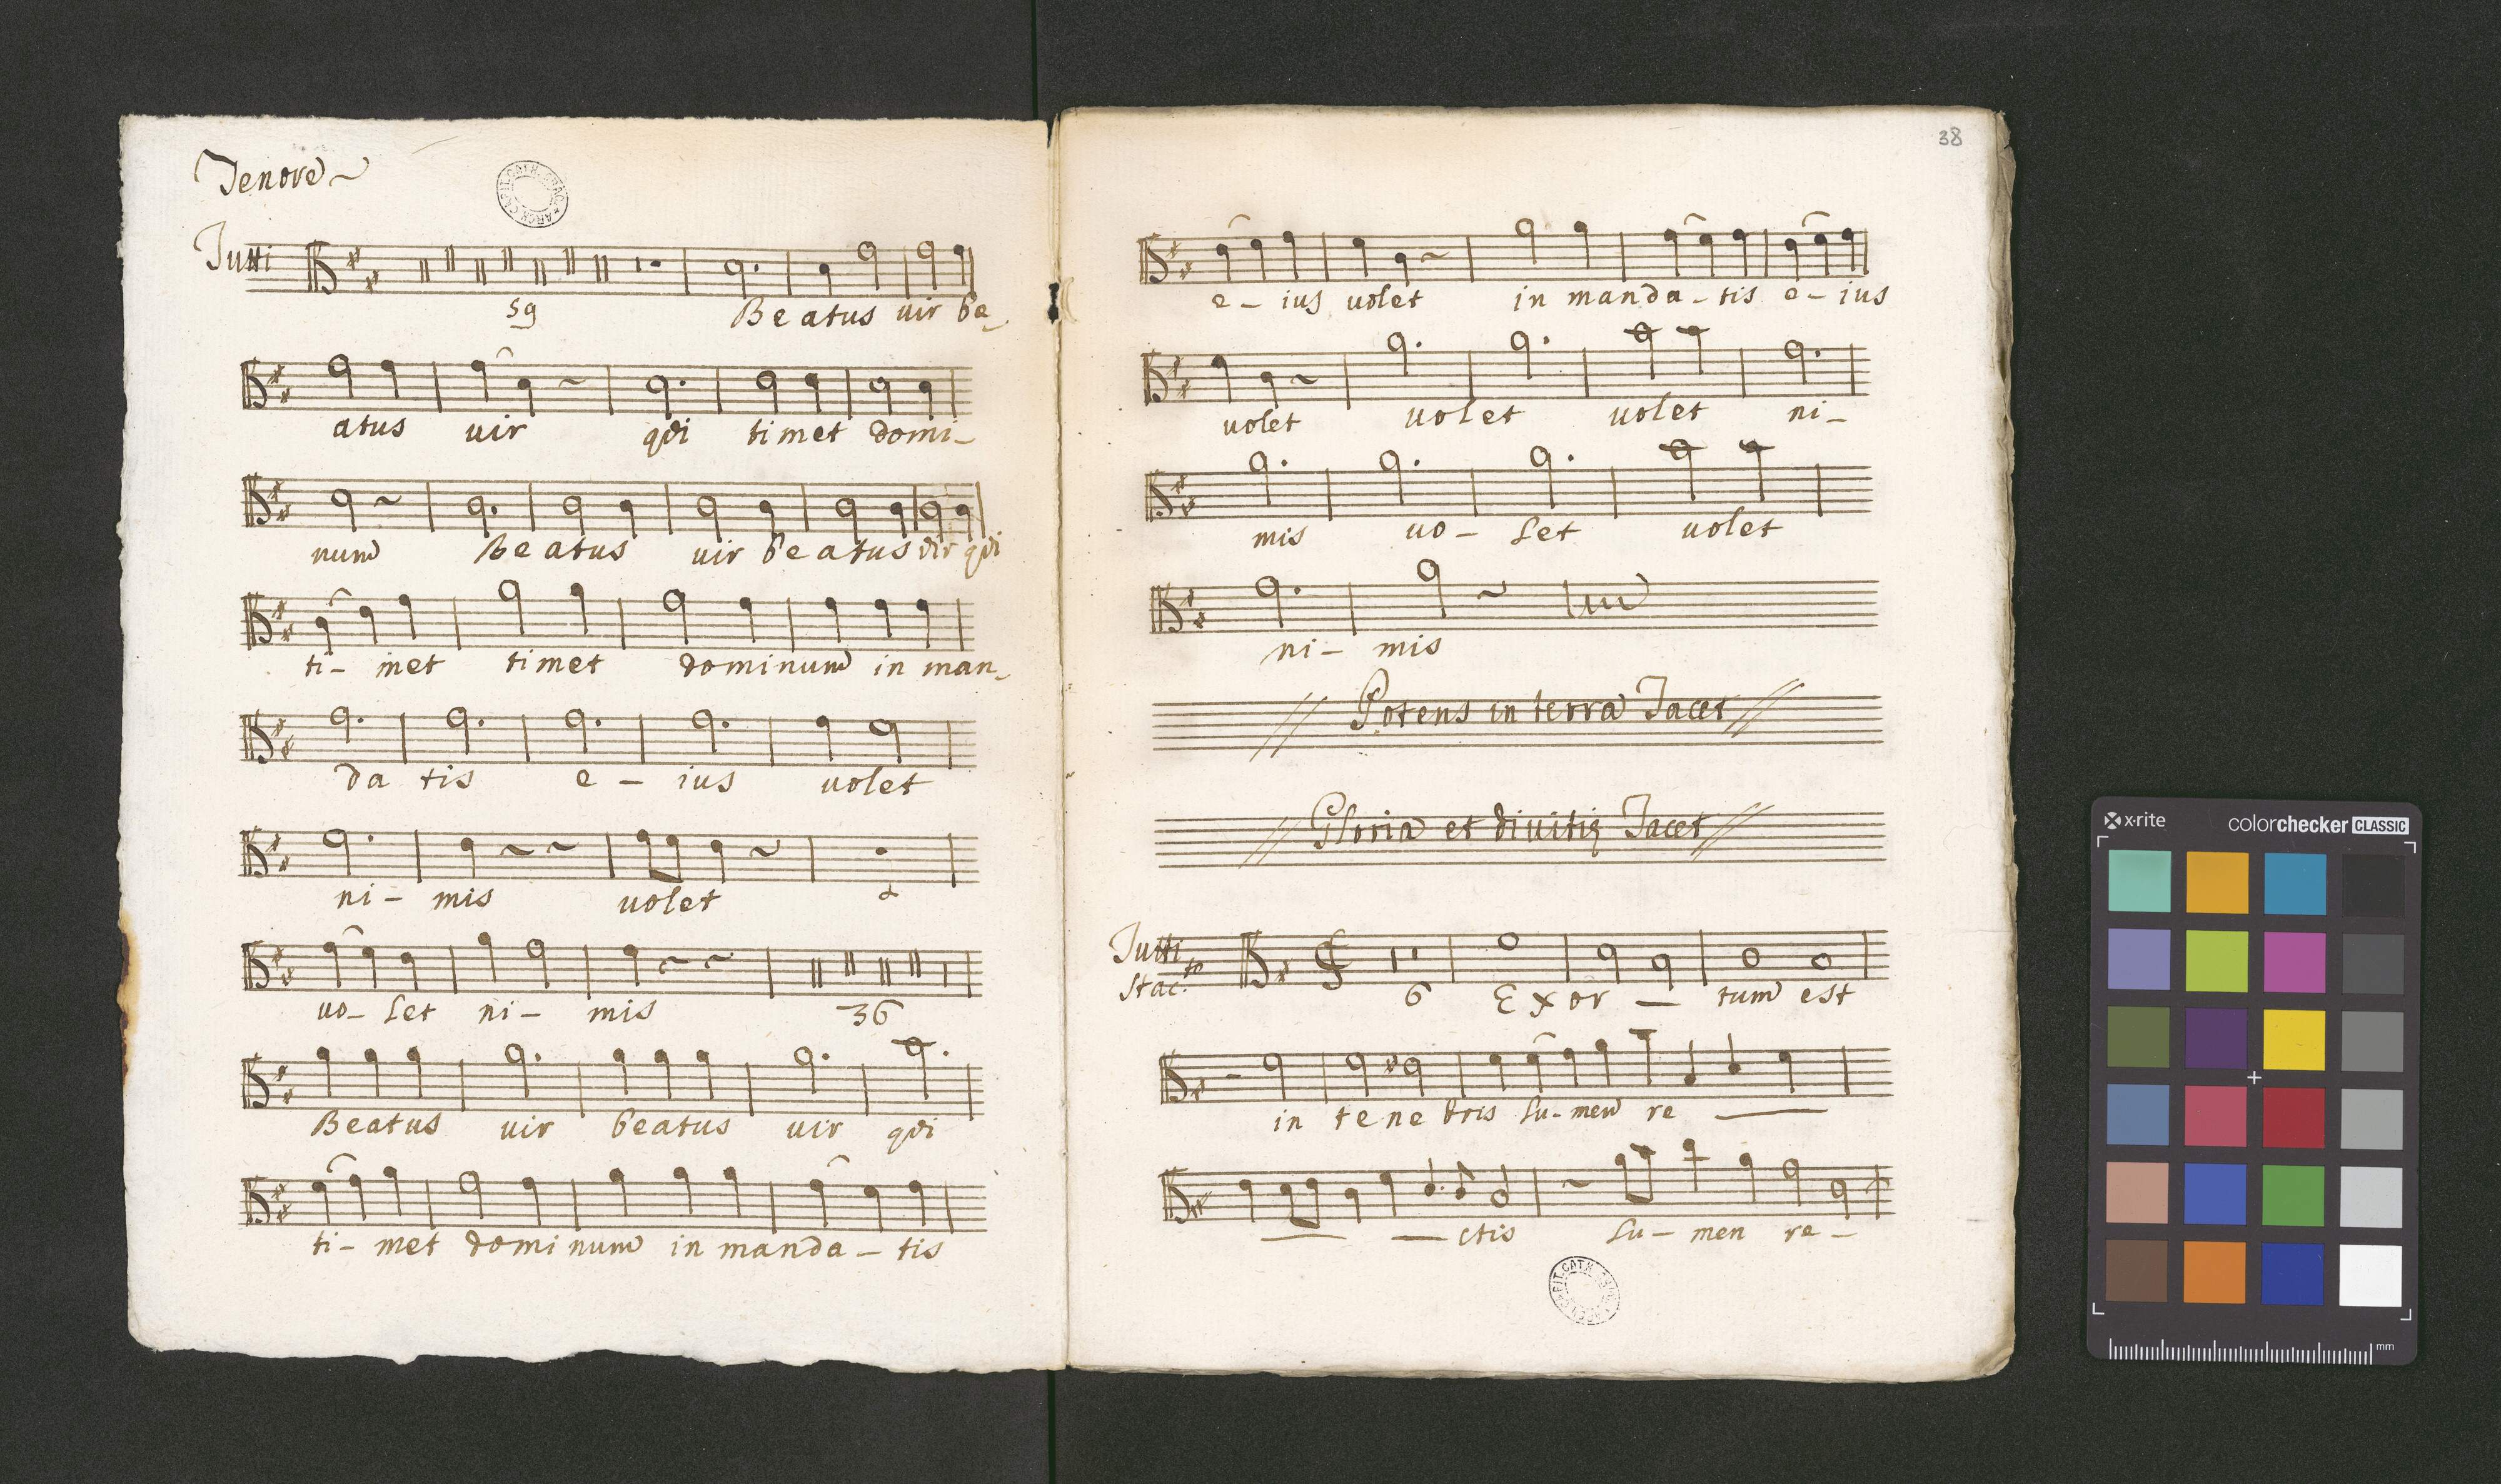 Tenore
Tutti
59 Beatus vir be-
atus uir qui timet domi-
num Beatus uir beatus vir qui
ti- met timet dominum in man-
da tis e- ius uolet
ni- mis uolet 2
uo- let ni- mis 36
Beatus uir beatus uir qui
ti- met dominum in manda- tis
38
e- ius uolet in manda- tis e- ius
uolet uolet uolet ni-
mis uo- let uolet
ni- mis
Potens in terra Tacet
Gloria et diuitię Tacet
Tutti
Stac.to
6 Exor - tum est
in tenebris lu- men re
ctis lu- men re-
x-rite colorchecker CLASSIC
mm